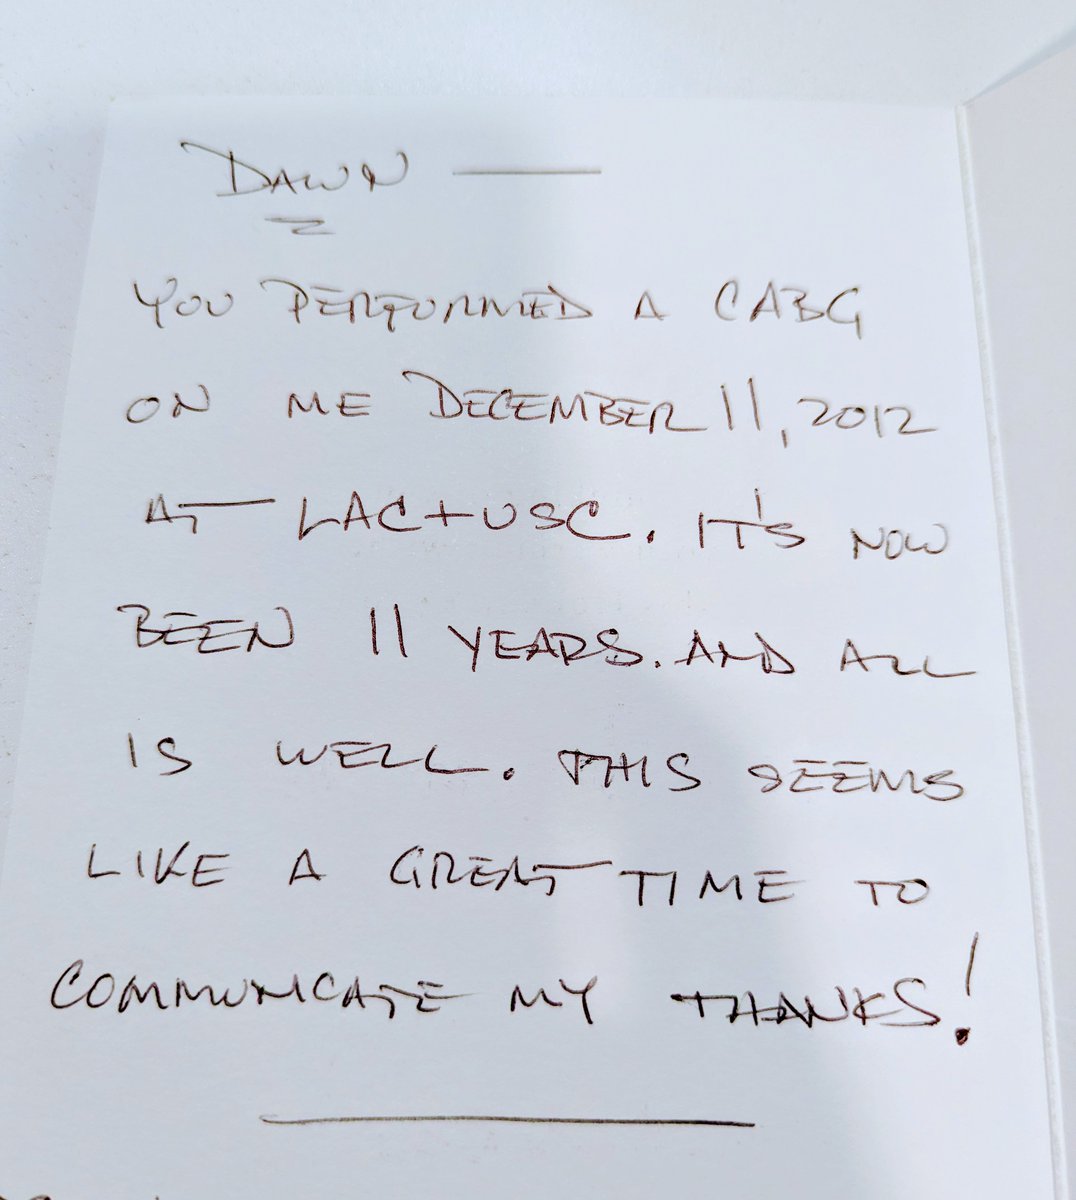 DAWN —
YOU PERFORMED A CABG
ON ME DECEMBER 11, 2012
AT LAC+USC. IT'S NOW
BEEN 11 YEARS. AND ALL
IS WELL. THIS SEEMS
LIKE A GREAT TIME TO
COMMUNICATE MY THANKS!